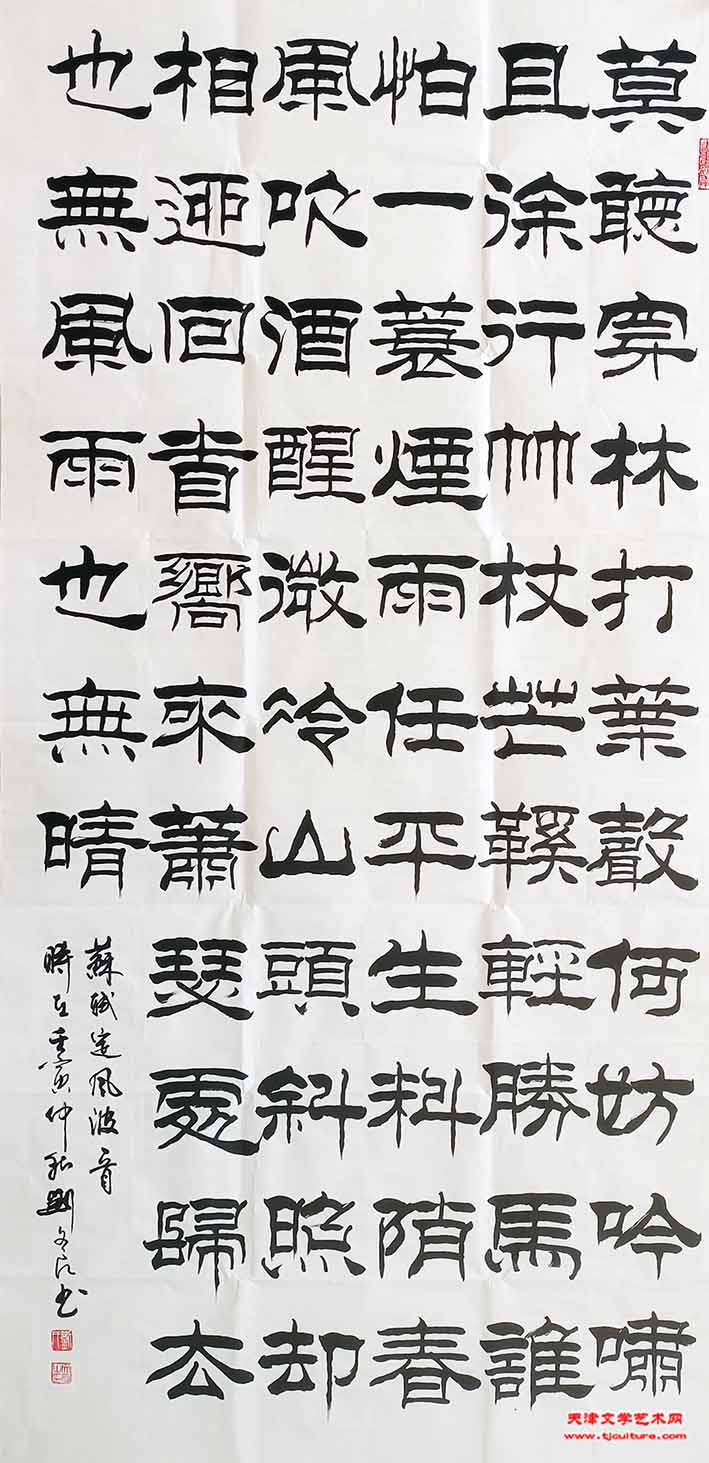 莫聽穿林打葉聲何妨吟嘯
且徐行竹杖芒鞵輕勝馬誰
怕一蓑煙雨任平生料陗春
風吹酒醒微冷山頭斜照却
相迎回首嚮來蕭瑟處歸去
也無風雨也無晴
蘇軾定風波一首
時在壬寅仲秋劉书
天津文学艺术网
www.tjculture.com